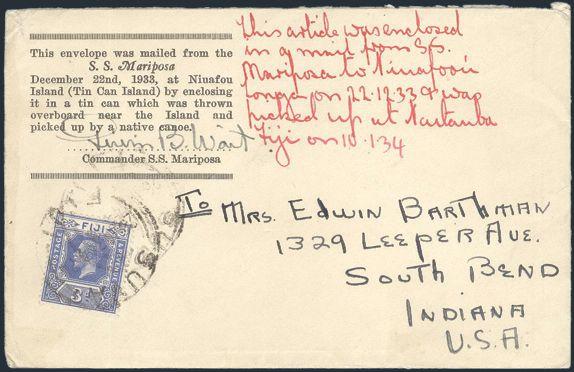 This envelope was mailed from the
S. S. Mariposa
December 22nd, 1933, at Niuafou
Island (Tin Can Island) by enclosing
it in a tin can which was thrown
overboard near the Island and
picked up by a native canoe.
B. Wait
Commander S.S. Mariposa
This article was enclosed
in a mail from S.S.
Mariposa to Niuafoou
Tonga on 22.12.33 & was
picked up at Naitauba
Fiji on 10.1.34
FIJI
POSTAGE
& REVENUE
3d
To Mrs. Edwin Barthman
1329 Leeper Ave.
South Bend
Indiana
U.S.A.